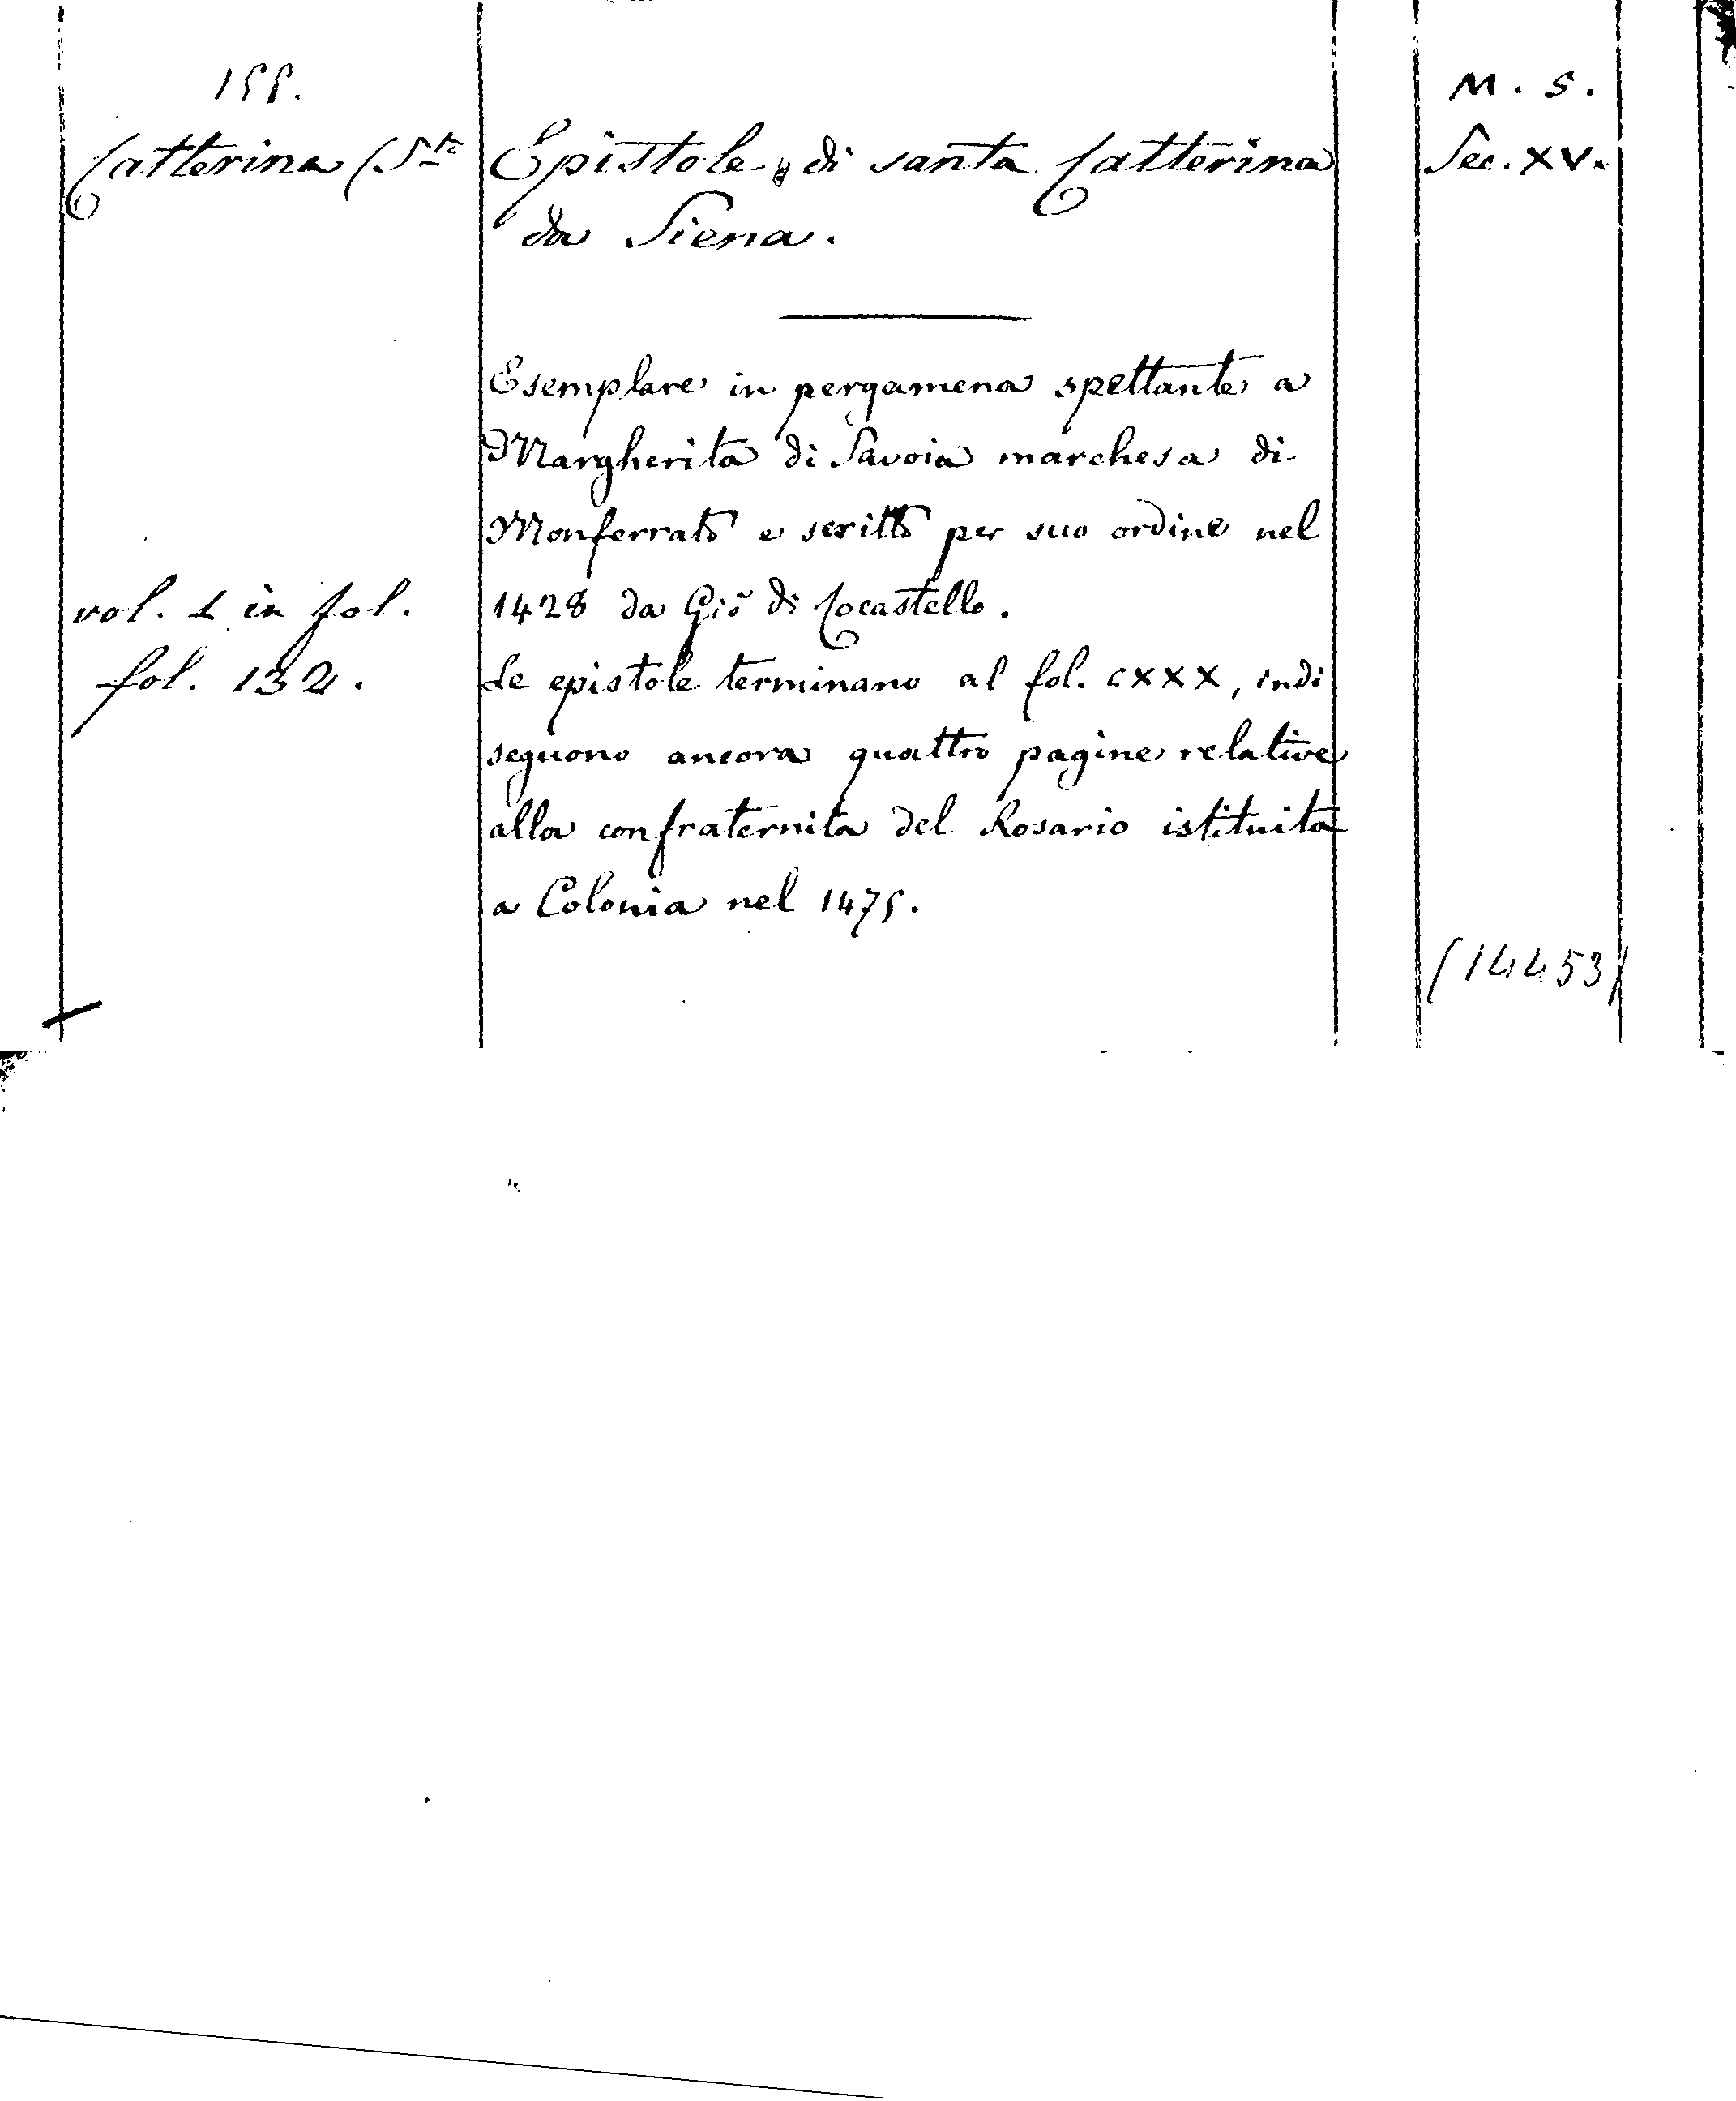 155.
Catterina (Sta
Epistole di santa Catterina
da Siena.
M. S.
Sec. XV.
Esemplare in pergamena spettante a
Margherita di Savoia marchesa di
Monferrato e scritto per suo ordine nel
1428 da Gio di Cocastello.
vol. 1 in fol.
fol. 132.
Le epistole terminano al fol. CXXX, indi
seguono ancora quattro pagine relative
alla confraternita del Rosario istituita
a Colonia nel 1475.
(14453)